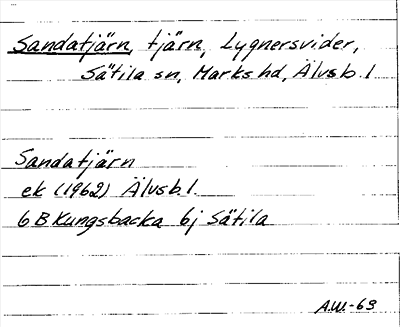 Sandatjärn, tjärn, Lygnersvider,
Sätila sn, Marks hd, Älvsb. l
Sandatjärn
ek (1962) Älvsb. l.
6 B Kungsbacka 6j Sätila
A.W.-69